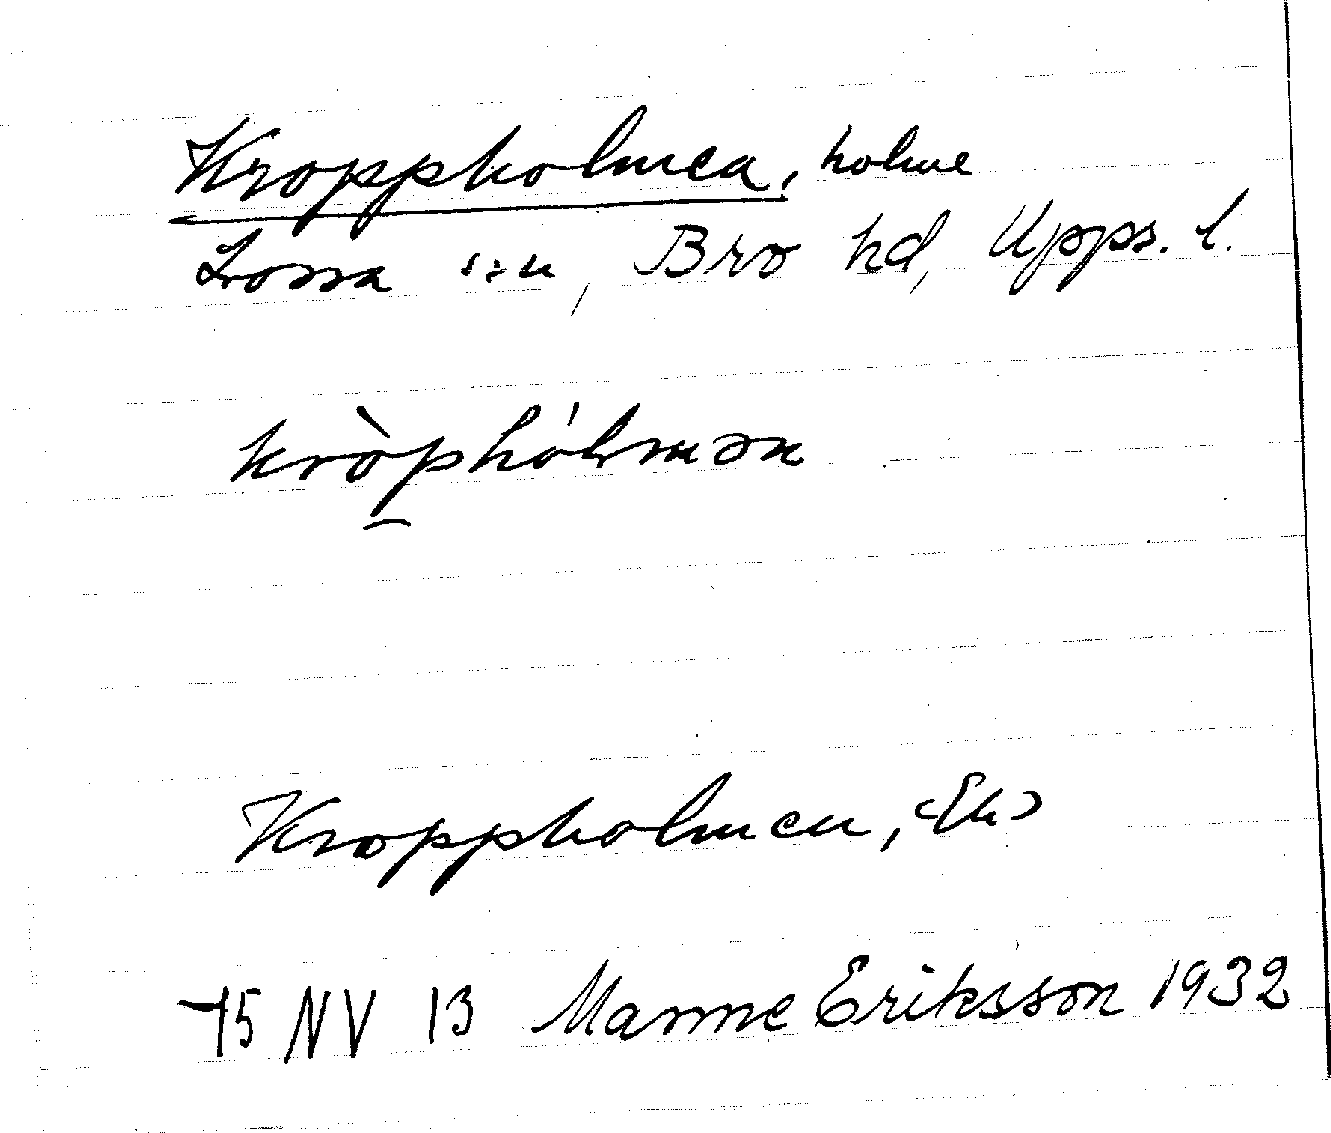 Kroppholmen, holme
Lossa sn, Bro hd, Upps. l.
kròphólmən
Kroppholmen, <Ek>
75 NV 13 Manne Eriksson 1932